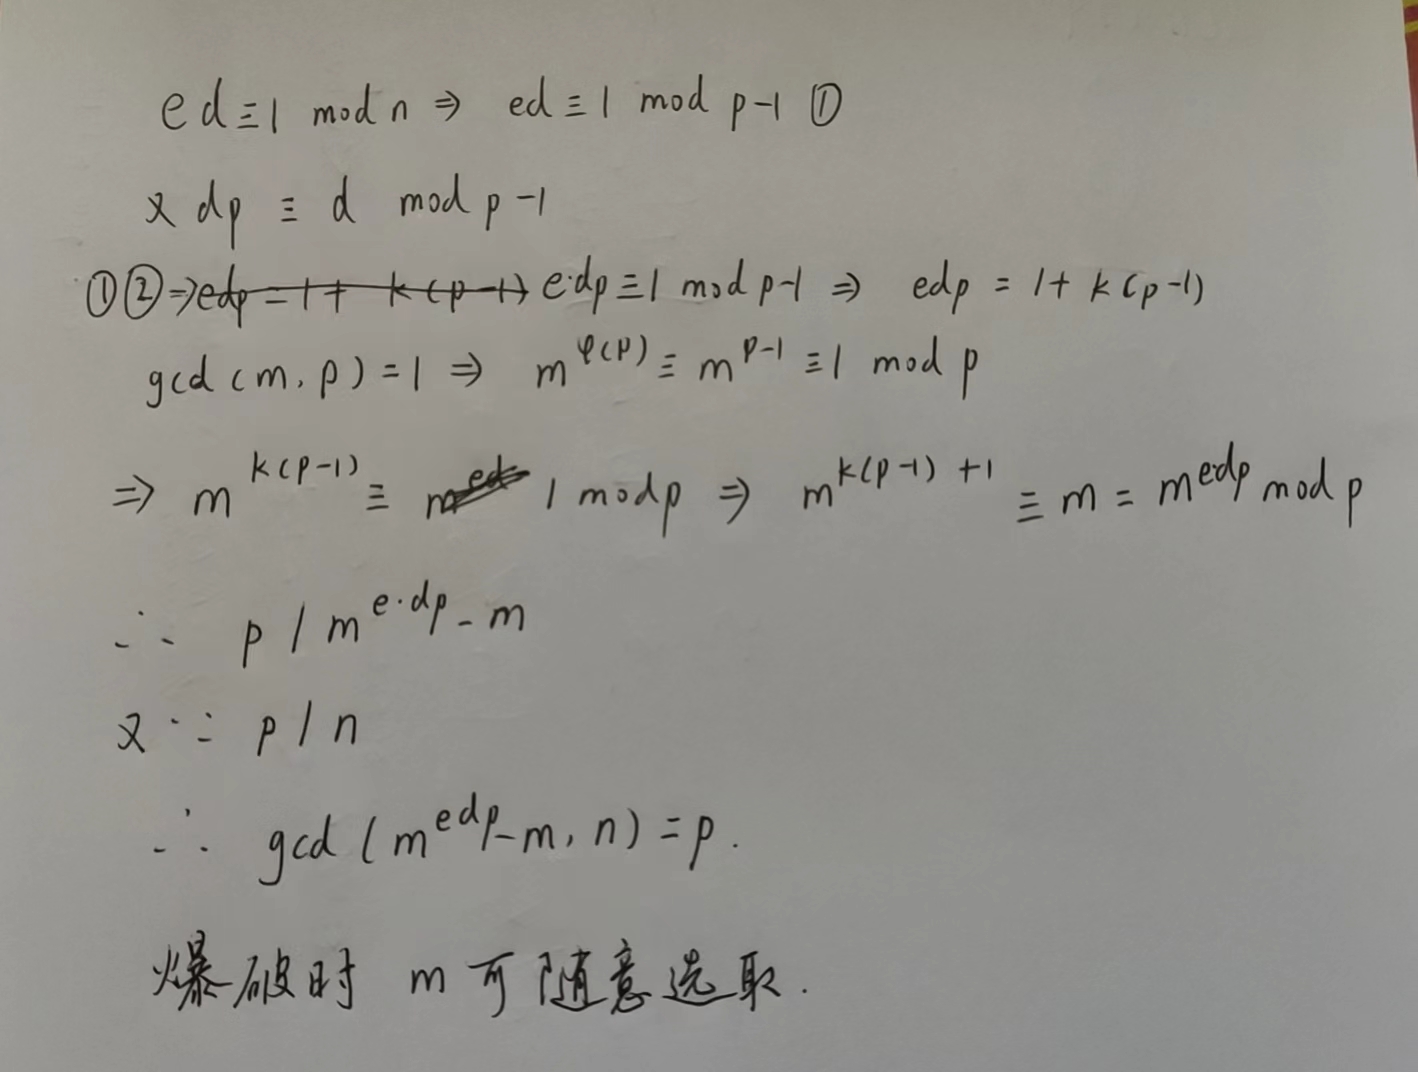 ed≡1 mod n ⇒ ed≡1 mod p-1 ①
又 dp ≡ d mod p-1
①②⇒ edp = 1 + k(p-1) e·dp≡1 mod p-1 ⇒ edp = 1+ k(p-1)
gcd(m, p)=1 ⇒ m^φ(p) ≡ m^p-1 ≡1 mod p
⇒ m^k(p-1) ≡ 1 mod p ⇒ m^k(p-1)+1 ≡ m = m^edp mod p
∴ p / m^e·dp - m
又∵ p / n
∴ gcd(m^edp - m, n) = p.
爆破时 m 可随意选取.